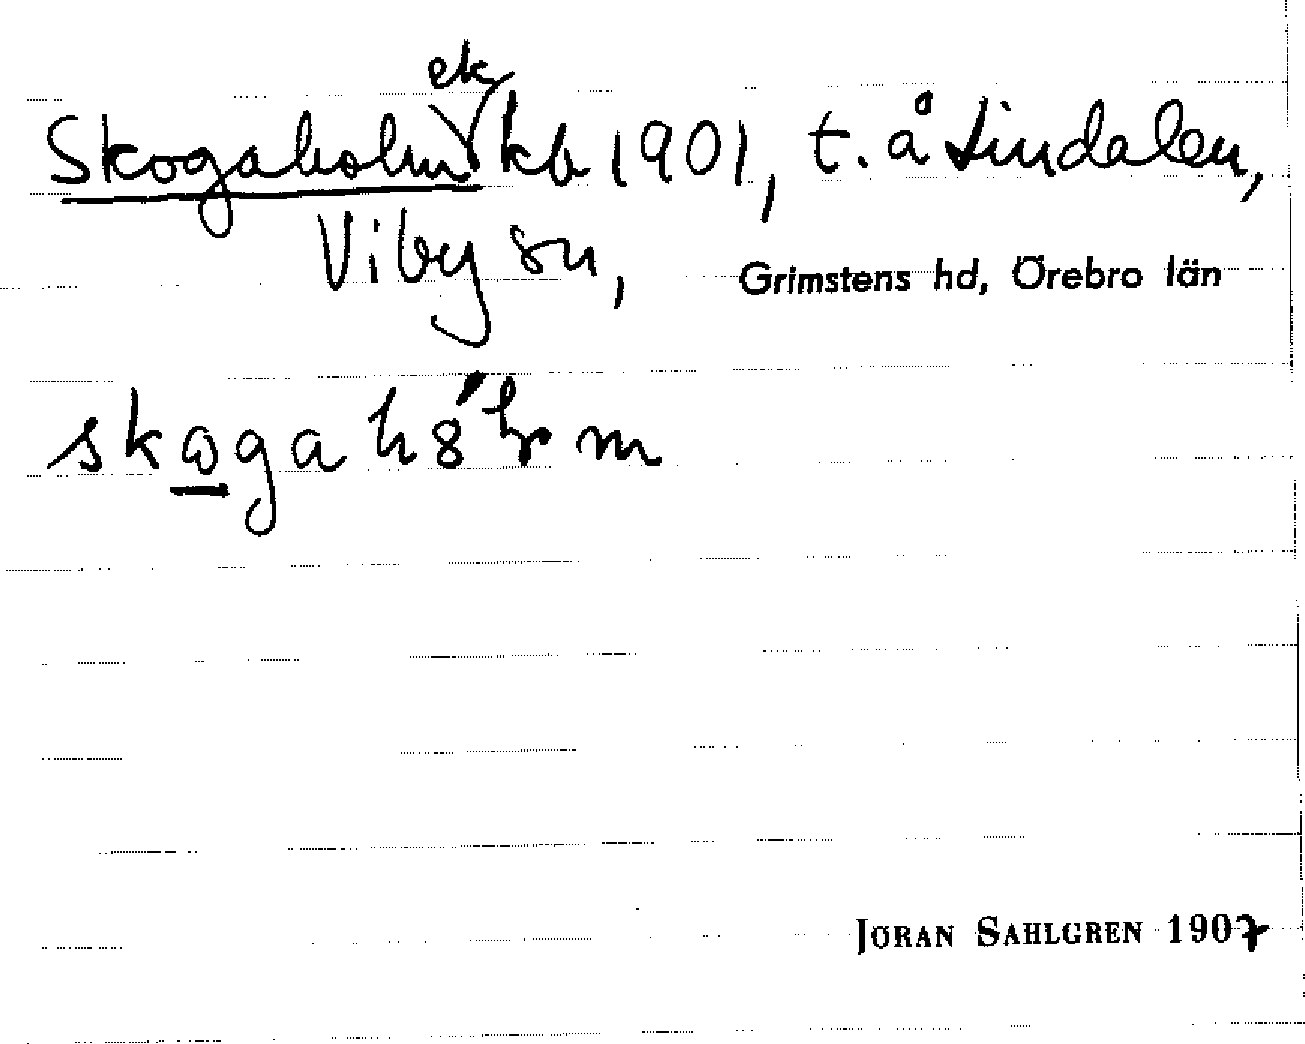 Skogaholm ek kb 1901, t. å Lindalen,
Viby sn, Grimstens hd, Örebro län
JÖRAN SAHLGREN 1907